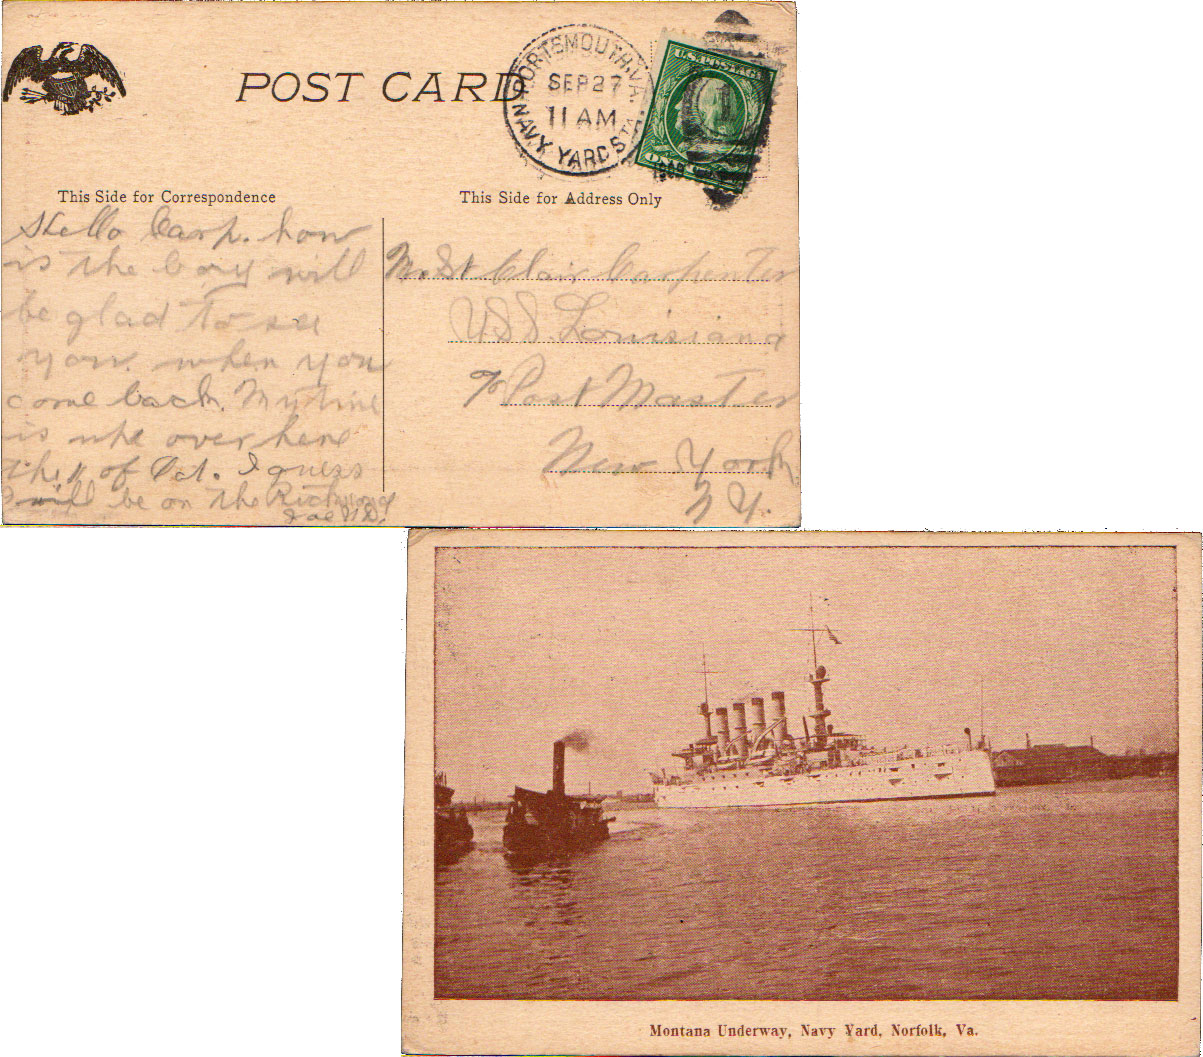 POST CARD
PORTSMOUTH, VA.
SEP 27
11 AM
NAVY YARD STA.
1909
U.S. POSTAGE
1
This Side for Correspondence
This Side for Address Only
Hello Carp. how
is the boy will
be glad to see
you. when you
come back. My time
is up over here
the of Oct. I guess
I will be on the Richmond
Mr St Clair Carpenter
USS. Louisiana
℅ Post Master
New York.
N Y.
Montana Underway, Navy Yard, Norfolk, Va.